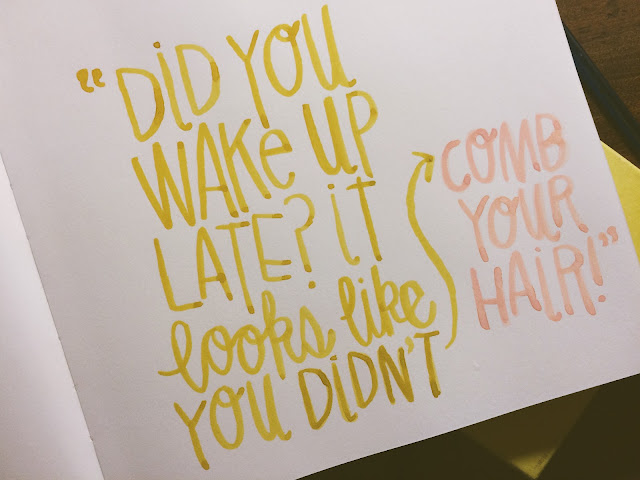 “DiD YOU
WAKe UP
LATE? iT
looks like
YOU DiDN'T
COMB
YOUR
HAiR!”